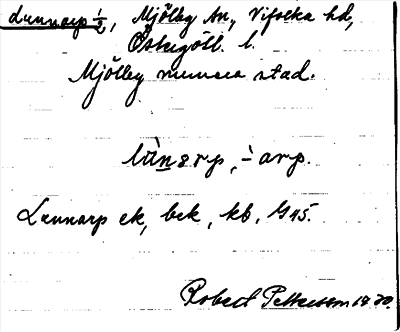 Lunnarp ½, Mjölby sn., Vifolka hd,
Östergötl. l.
Mjölby numera stad.
lùnarp, -̀ arp.
Lunnarp ek, bek, kb, 1945.
Robert Pettersson 1930.